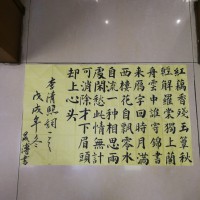 紅藕香殘玉簟秋
輕解羅裳獨上蘭
舟雲中誰寄錦書
來鴈字回時月滿
西樓花自飄零水
自流一種相思兩
處閑愁此情無計
可消除才下眉頭
却上心頭
李清照詞
戊戌年冬
書